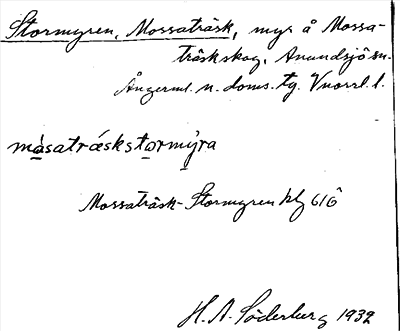 Stormyren, Mossaträsk, myr å Mossa-
träskskog, Anundsjö sn.
Ångerml. n. doms. tg. Vnorrl. l.
måsatráskstormýra
Mossaträsk-Stormyren kbg 616
H. A. Söderberg 1932